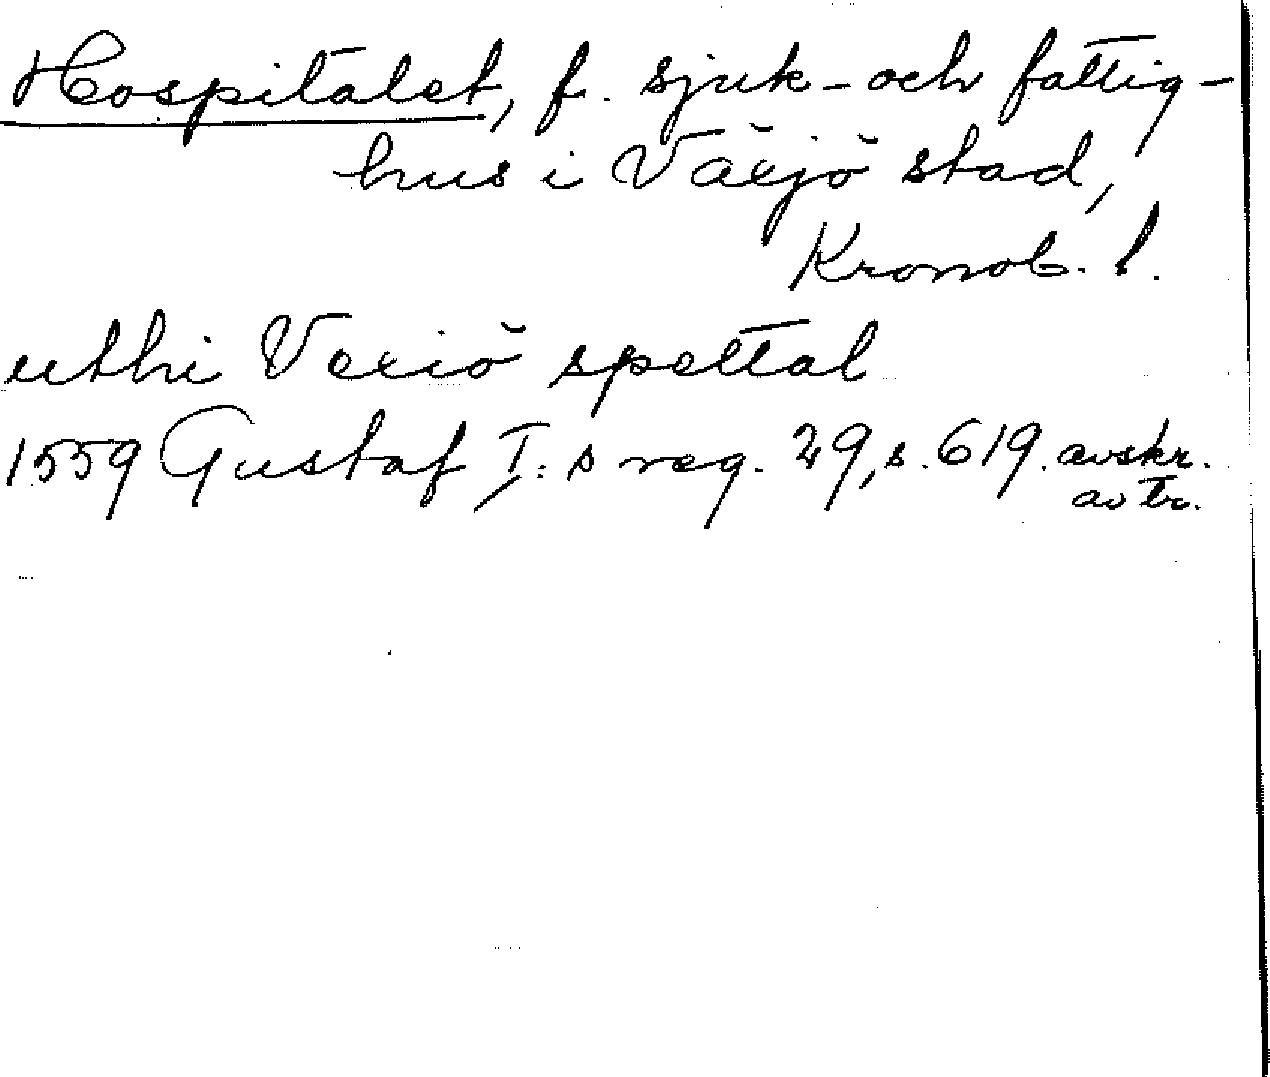 Hospitalet, f. sjuk- och fattig-
hus i Växjö stad,
Kronob. l.
uthi Vexiö spettal
1559 Gustaf I:s reg. 29, s. 619. avskr.
av tr.